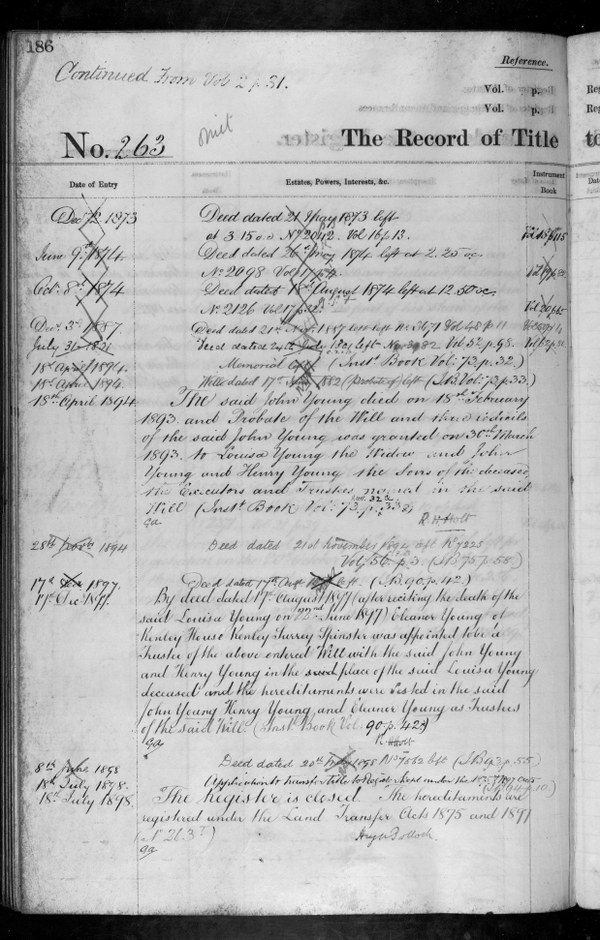 186
Continued From Vol. 2 p. 31.
Reference.
Vol. p.
Vol. p.
No. 263
The Record of Title
to
Date of Entry
Estates, Powers, Interests, &c.
Instrument
Book
1873
Deed dated 21 May 1873 left
at 3 15 o.c. No 2042. Vol 16 p 13.
June 9th 1874
Deed dated 1874 left at 2. 25 o.c.
No 2098 Vol 17
Oct. 8th 1874
Deed dated August 1874 left at 12.50 o.c.
No. 2126 Vol 17
1887.
Deed dated 21st 1887 left Vol 48 p 11
July
Deed dated July left Vol 52 p. 98.
18th April 1894.
Memorial (Inst. Book Vol: 73, p. 32.)
18th April 1894.
Will dated 17th 1882 (Probate of) left (I.B. Vol: 73 p. 33.)
18th April 1894
The said John Young died on 18th February
1893 and Probate of the Will and three codicils
of the said John Young was granted on 30th March
1893. to Louisa Young the Widow and John
Young and Henry Young the Sons of the deceased
the Executors and Trustees named in the said
Will (Inst. Book Vol: 73, p. 33)
R H Holt
28th 1894
Deed dated 21st November left No 7225
Vol 56. p. 3. (I.B. 75 p. 58)
17th 1897.
Deed dated 17th left. (I.B. 90. p. 42.)
17th Dec. 1897.
By deed dated 17th August 1897 (after reciting the death of the
said Louisa Young on 22nd June 1897) Eleanor Young of
Kenley House Kenley Surrey Spinster was appointed to be a
Trustee of the above entered Will with the said John Young
and Henry Young in the place of the said Louisa Young
deceased and the hereditaments were vested in the said
John Young Henry Young and Eleanor Young as Trustees
of the said Will. (Inst. Book Vol. 90. p. 42)
R H Holt
8th June 1898
Deed dated 20th 1898 No 7562 left (I.B. 93 p. 55)
18th July 1898.
Application to transfer title to Register kept under the 1875 & 1897 Acts
(I.B. 94 p. 10)
18th July 1898.
The Register is closed. The hereditaments are
registered under the Land Transfer Acts 1875 and 1897
Hugh Pollock